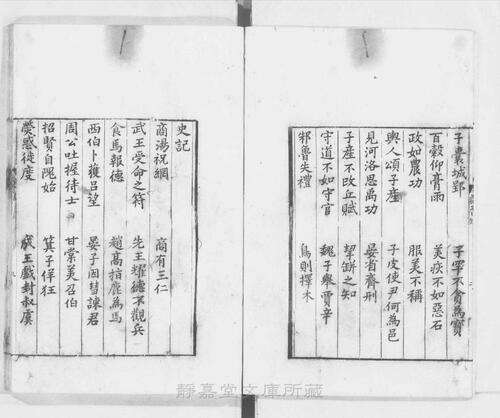 子囊城郢　子罕不貪為寶
百穀仰膏雨　美疢不如惡石
政如農功　服美不稱
輿人頌子產　子皮使尹何為邑
見河洛思禹功　晏子省齊刑
子產不改丘賦　挈缾之知
守道不如守官　魏子舉賈辛
邾魯失禮　鳥則擇木
史記
商湯祝網　商有三仁
武王受命之符　先王耀德不觀兵
食馬報德　趙高指鹿為馬
西伯卜獲呂望　晏子因彗諫君
周公吐握待士　甘棠美召伯
招賢自隗始　箕子佯狂
熒惑徙度　成王戲封叔虞
靜嘉堂文庫所藏